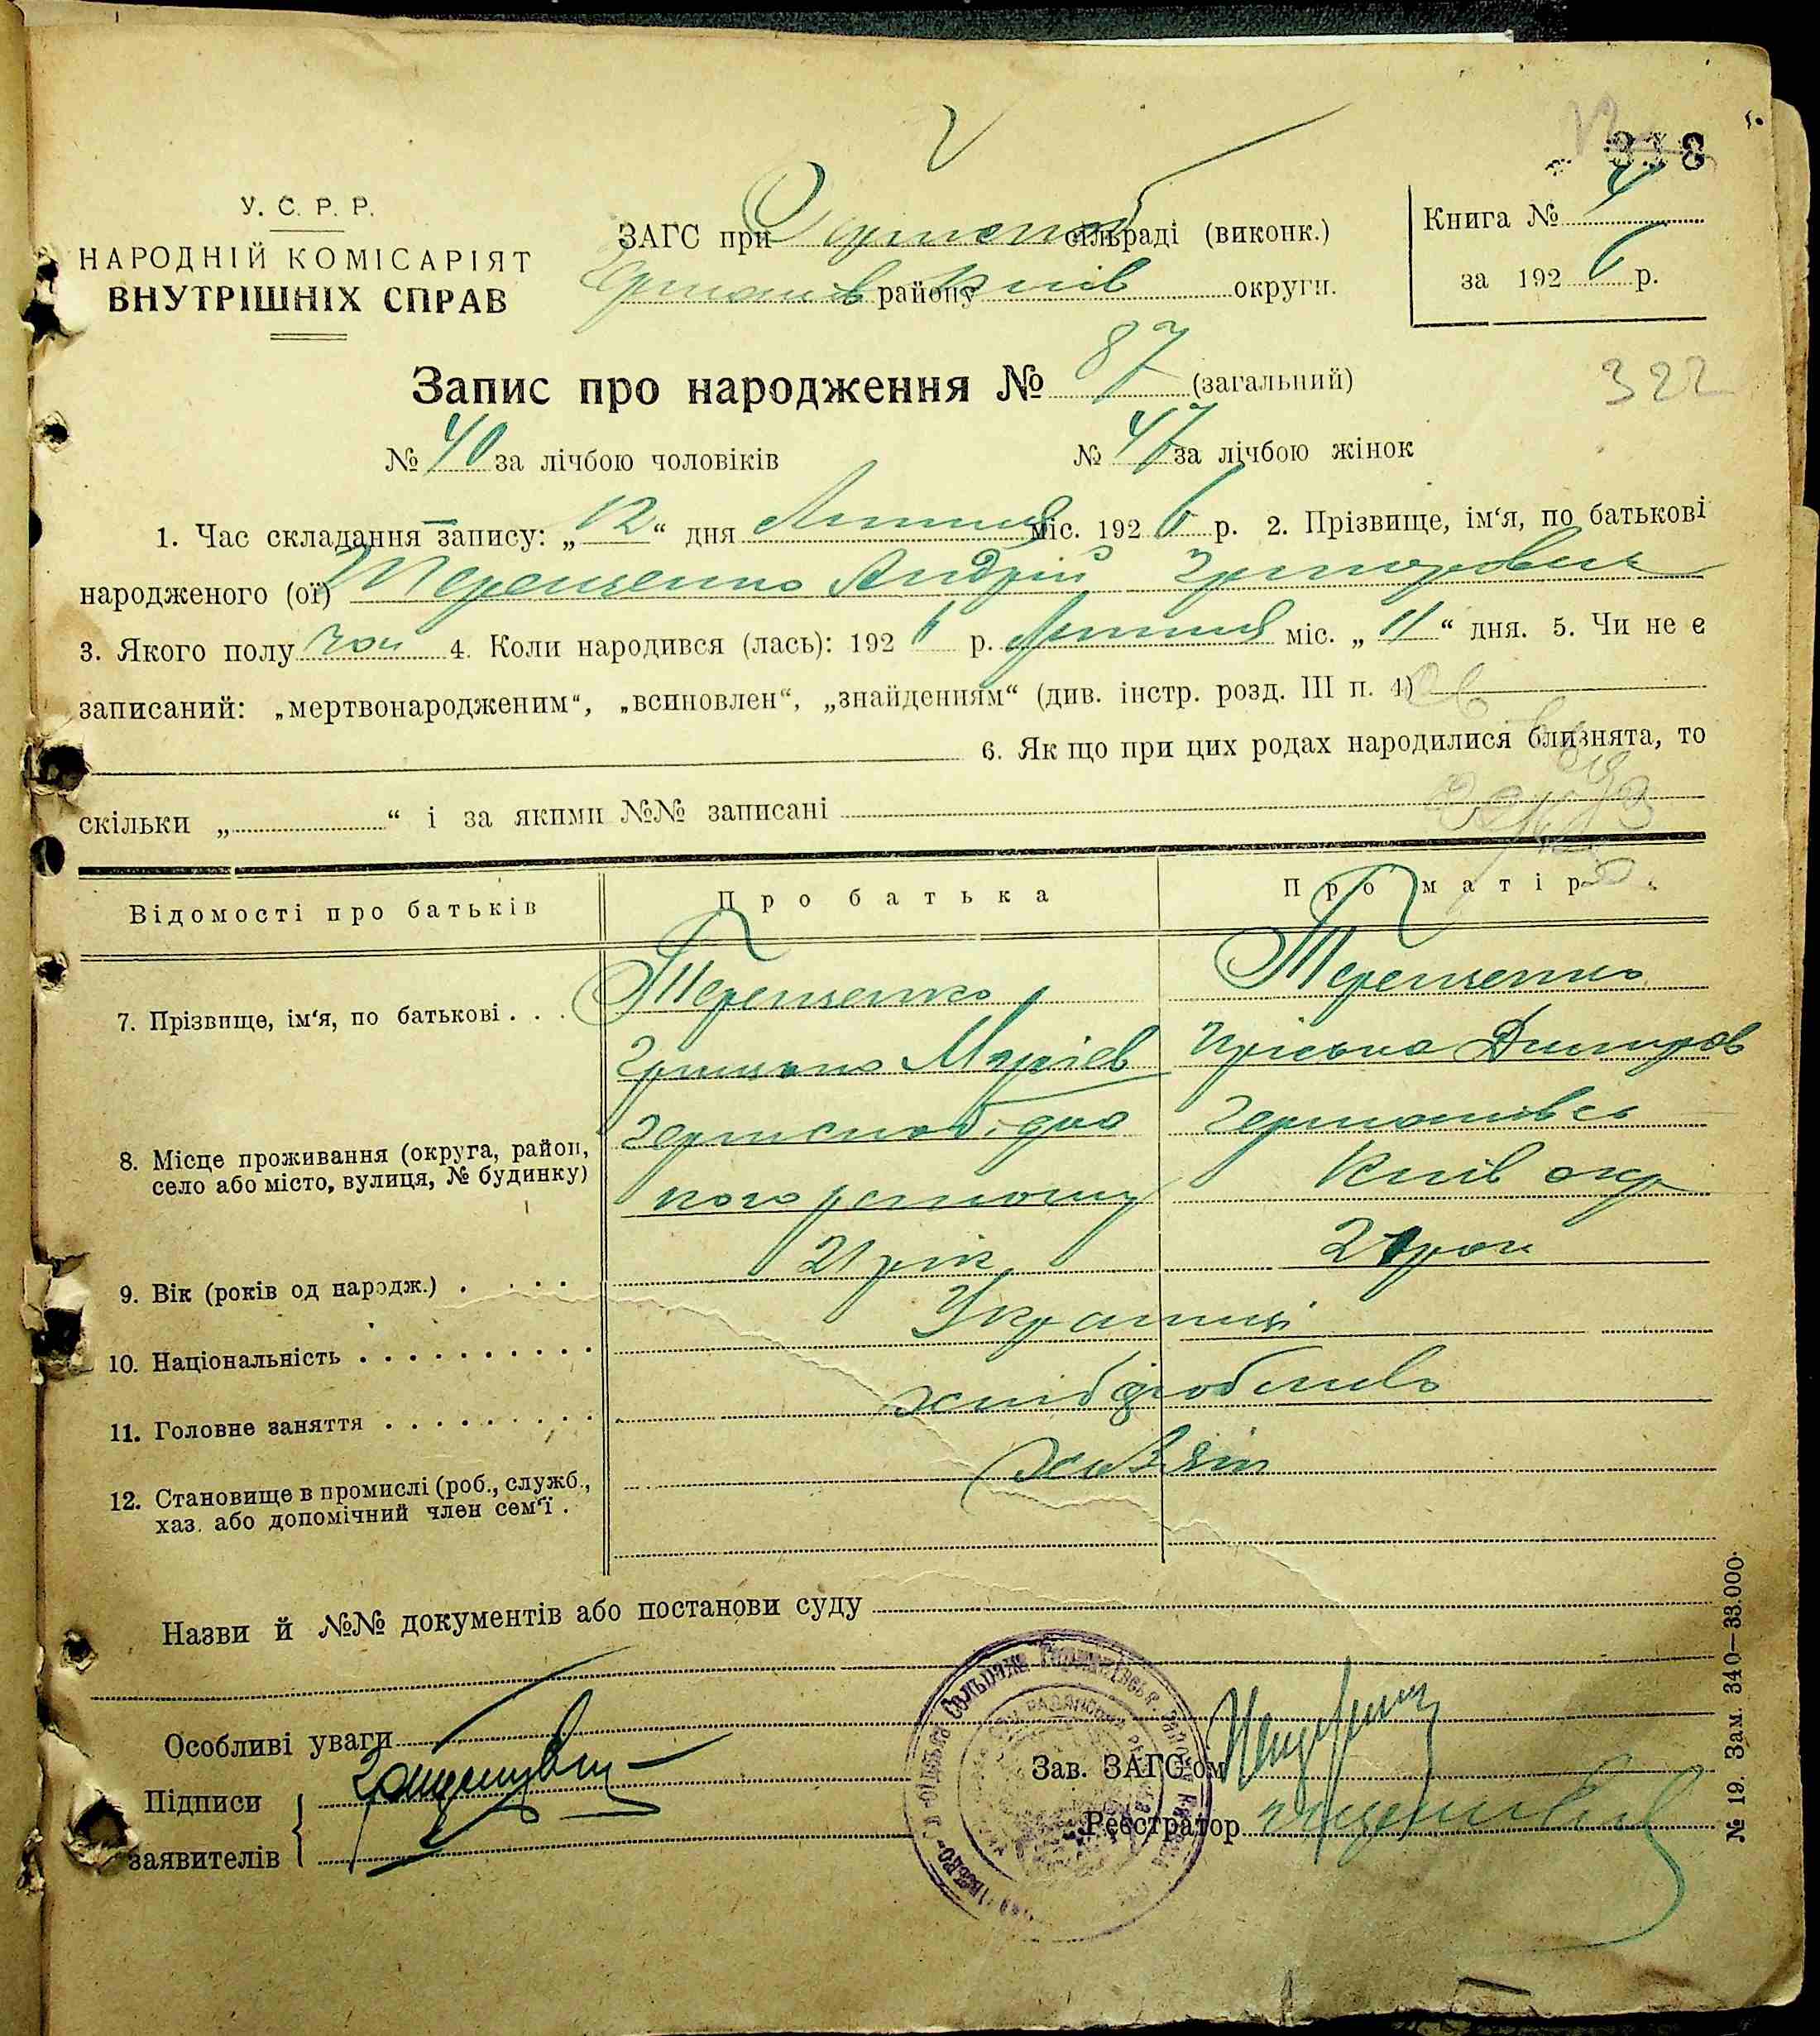 318
У. С. Р. Р.
НАРОДНІЙ КОМІСАРІЯТ
ВНУТРІШНІХ СПРАВ
ЗАГС при сільраді (виконк.)
району Київ округи.
Книга №
за 1926 р.
322
Запис про народження № 87 (загальний)
№ 40 за лічбою чоловіків № 47 за лічбою жінок
1. Час складання запису: „12“ дня Липня міс. 1926 р. 2. Прізвище, ім‘я, по батькові
народженого (ої) Терещенко Андрій Григорович
3. Якого полу чол 4. Коли народився (лась): 1926 р. Липня міс. „11“ дня. 5. Чи не є
записаний: „мертвонародженим“, „всиновлен“, „знайденням“ (див. інстр. розд. III п. 4)
6. Як що при цих родах народилися близнята, то
скільки „ “ і за якими №№ записані
Відомості про батьків Про батька Про матір
7. Прізвище, ім‘я, по батькові . . . Терещенко Терещенко
Грицько Пріська Дмитров
8. Місце проживання (округа, район,
село або місто, вулиця, № будинку)
Київ окр
9. Вік (років од народж.) . . . . 21 рік роки
10. Національність . . . . . . . . . . Українці
11. Головне заняття . . . . . . . . . хліборобство
12. Становище в промислі (роб., служб.,
хаз. або допомічний член сем‘ї . хазяїн
Назви й №№ документів або постанови суду
Особливі уваги
Підписи
заявителів
Зав. ЗАГС‘ом
Реєстратор
№ 19. Зам. 340—33.000.